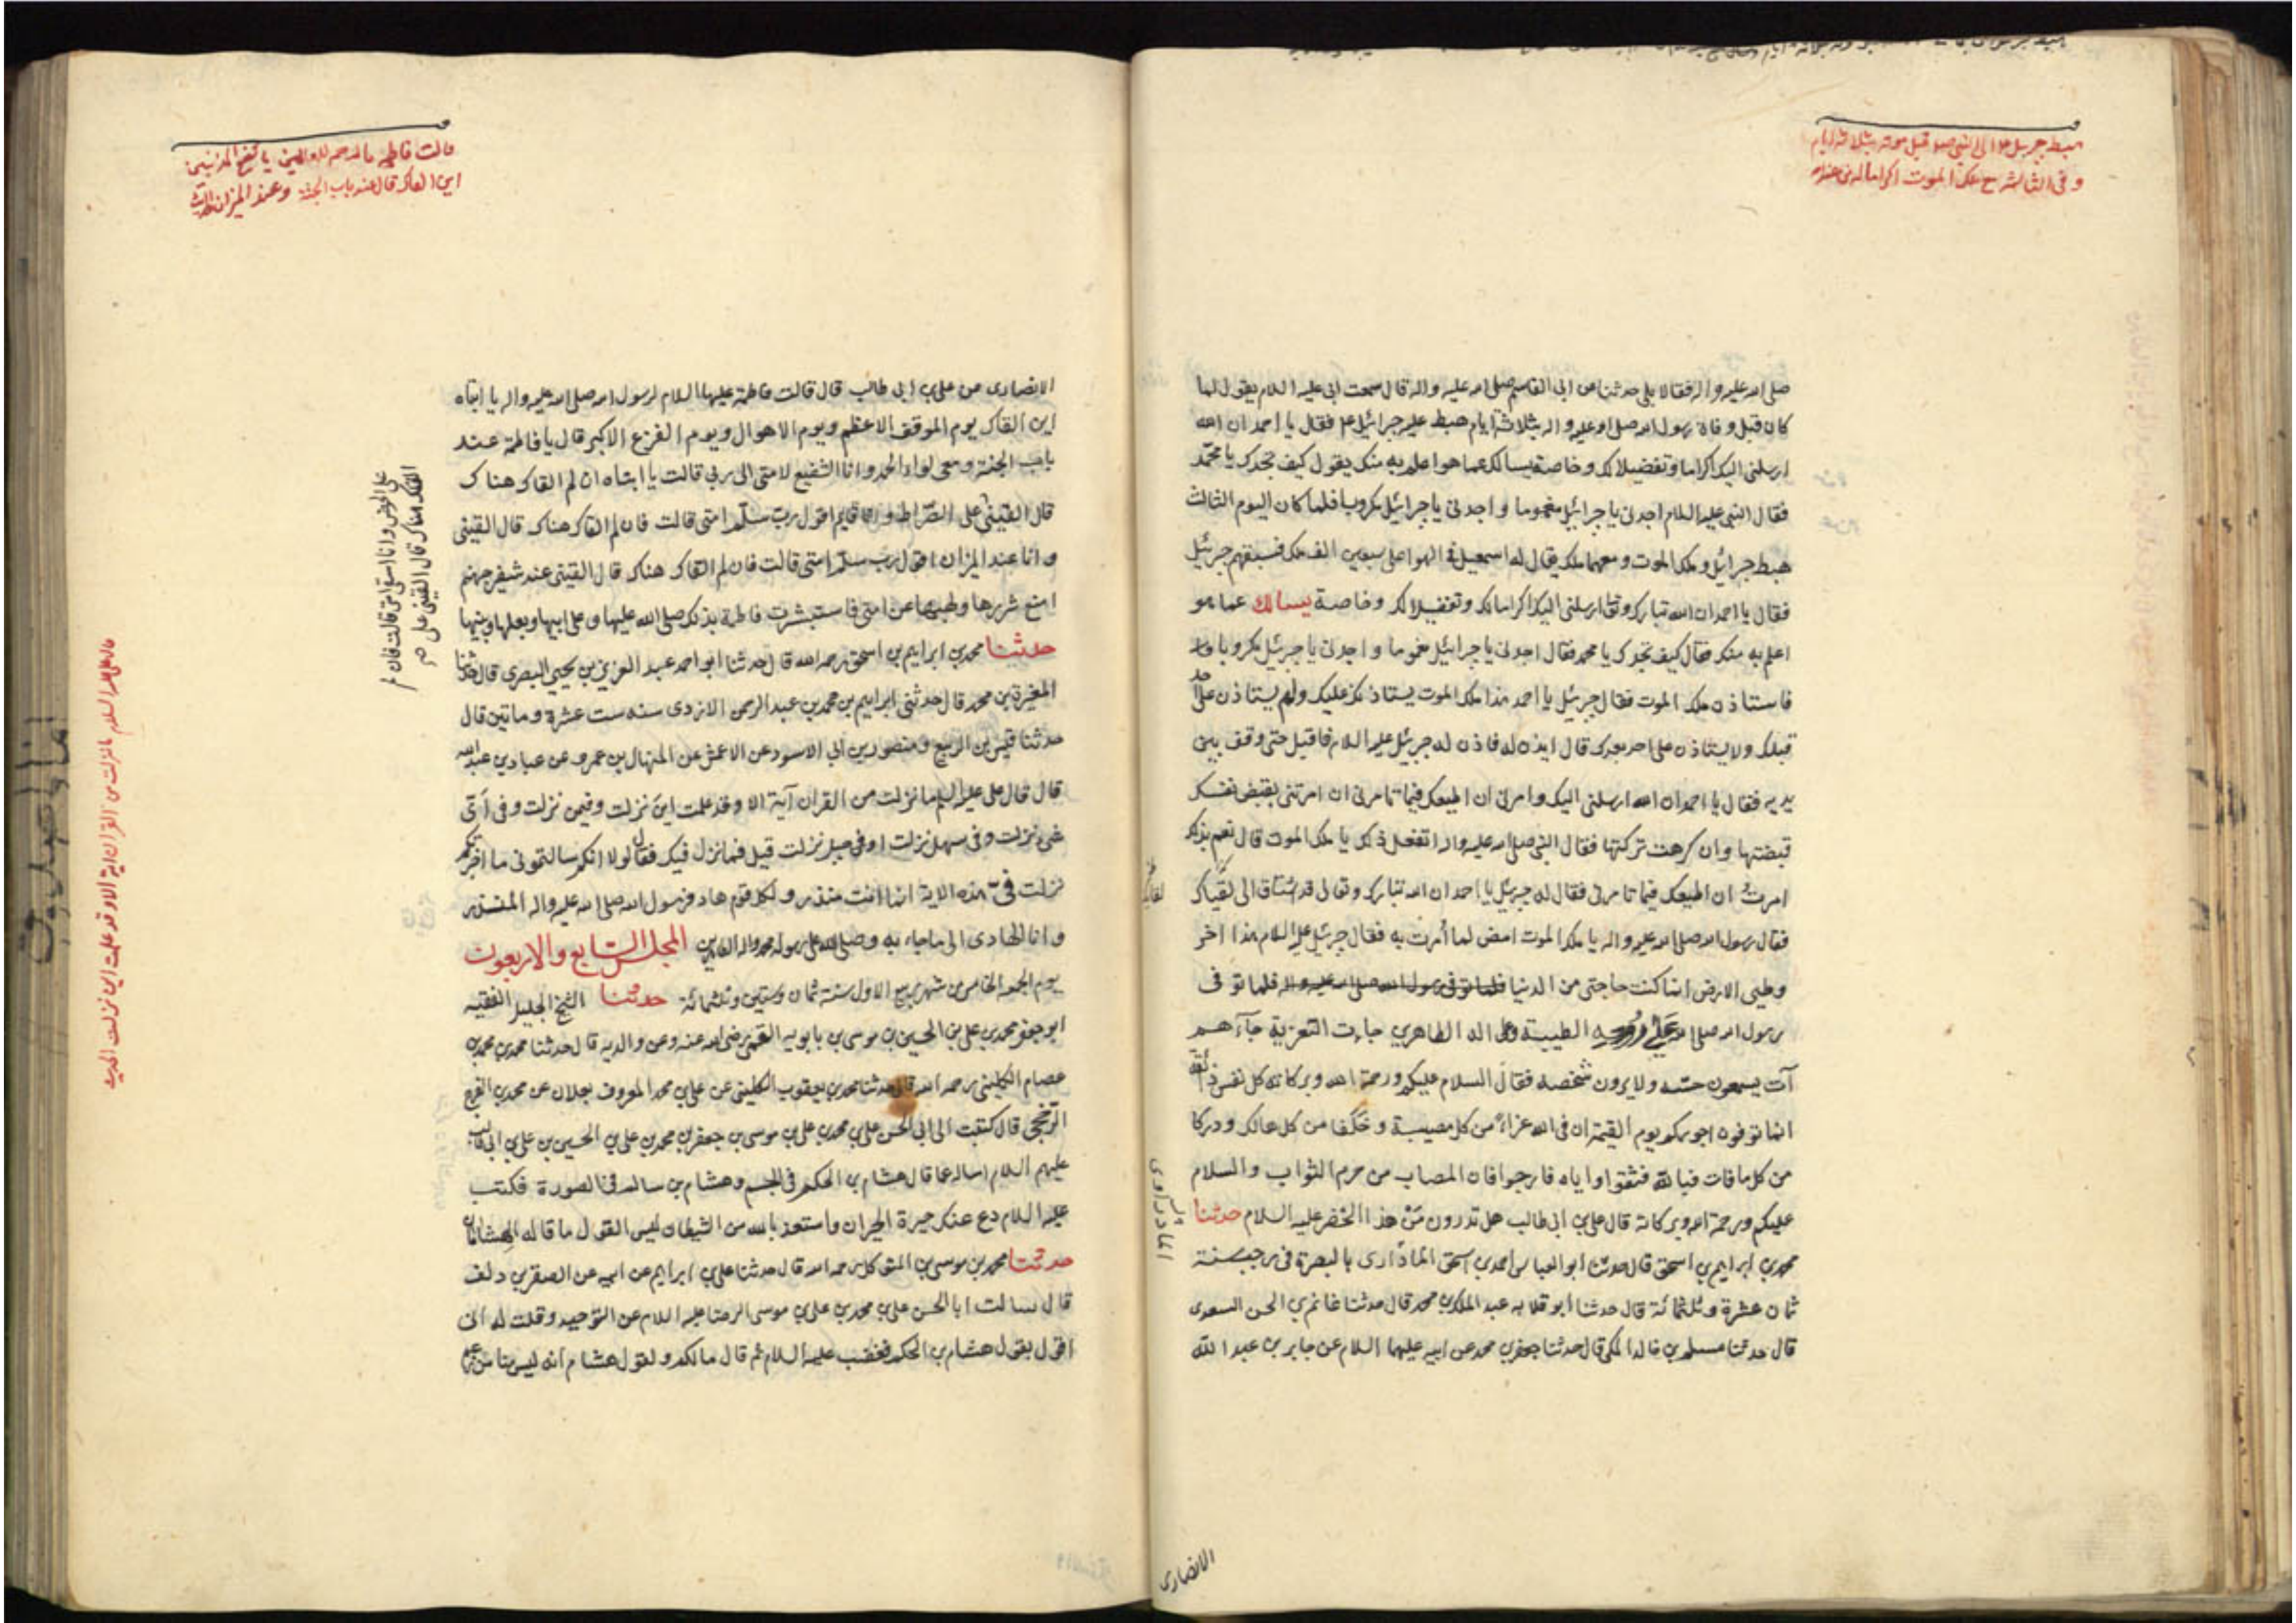 هبط جبرئيل ع الى النبي صلعم قبل موته بثلاثة ايام
وفى الثالثة مع ملك الموت اكراما له من عند الله
صلى الله عليه واله فقالا بلى حدثنا عن ابى القاسم صلى الله عليه واله قال سمعت ابى عليه السلام يقول لما
كان قبل وفاة رسول الله صلى الله عليه واله بثلاثة ايام هبط عليه جبرائيل ع فقال يا احمد ان الله
ارسلنى اليك اكراما وتفضيلا لك وخاصة يسالك عما هو اعلم به منك يقول كيف تجدك يا محمد
فقال النبى عليه السلام اجدنى يا جبرائيل مغموما واجدنى يا جبرائيل مكروبا فلما كان اليوم الثالث
هبط جبرائيل وملك الموت ومعهما ملك يقال له اسمعيل فى الهوا على سبعين الف ملك فسبقهم جبرئيل
فقال يا احمد ان الله تبارك وتعالى ارسلنى اليك اكراما لك وتفضيلا لك وخاصة يسالك عما هو
اعلم به منك فقال كيف تجدك يا محمد فقال اجدنى يا جبرائيل مغموما واجدنى يا جبرئيل مكروبا
فاستاذن ملك الموت فقال جبرئيل يا احمد هذا ملك الموت يستاذن عليك ولم يستاذن على احد
قبلك ولا يستاذن على احد بعدك قال ايذن له فاذن له جبرئيل عليه السلام فاقبل حتى وقف بين
يديه فقال يا احمد ان الله ارسلنى اليك وامرنى ان اطيعك فيما تامرنى ان امرتنى بقبض نفسك
قبضتها وان كرهت تركتها فقال النبى صلى الله عليه واله اتفعل ذلك يا ملك الموت قال نعم بذلك
امرت ان اطيعك فيما تامرنى فقال له جبرئيل يا احمد ان الله تبارك وتعالى قد اشتاق الى لقياك
لقائك
فقال رسول الله صلى الله عليه واله يا ملك الموت امض لما أمرت به فقال جبرئيل عليه السلام هذا اخر
وطيى الارض انما كنت حاجتى من الدنيا فلما توفى رسول الله صلى الله عليه واله فلما توفى
رسول الله صلى الله على روحه الطيبة وعلى اله الطاهرين جاءت التعزية جاءهم
آت يسمعون حسه ولا يرون شخصه فقال السلام عليكم ورحمة الله وبركاته كل نفس ذائقة
انما توفون اجوركم يوم القيمة ان فى الله عزاء من كل مصيبة وخلفا من كل هالك ودركا
من كل ما فات فبالله فثقوا واياه فارجوا فان المصاب من حرم الثواب والسلام
عليكم ورحمة الله وبركاته قال على بن ابى طالب هل تدرون من هذا الخضر عليه السلام حدثنا
محمد بن ابراهيم بن اسحق قال حدثنا ابو العباس احمد بن اسحق الماذارى بالبصرة فى رجب سنة
الماذراوى
ثمان عشرة وثلثمائة قال حدثنا ابو قلابه عبد الملك بن محمد قال حدثنا غانم بن الحسن السعدى
قال حدثنا مسلم بن خالد المكى قال حدثنا جعفر بن محمد عن ابيه عليهما السلام عن جابر بن عبد الله
الانصارى
قالت فاطمه
اين القاك قال عند باب الجنة وعند الميزان
الانصارى عن على بن ابى طالب قال قالت فاطمة عليها السلام لرسول الله صلى الله عليه واله يا ابتاه
اين القاك يوم الموقف الاعظم ويوم الاهوال ويوم الفزع الاكبر قال يا فاطمة عند
باب الجنة ومعى لواء الحمد وانا الشفيع لامتى الى ربى قالت يا ابتاه ان لم القاك هناك
قال القينى على الصراط وانا قايم اقول رب سلم امتى قالت فان لم القاك هناك قال القينى
وانا عند الميزان اقول رب سلم امتى قالت فان لم القاك هناك قال القينى عند شفير جهنم
امنع شررها ولهبها عن امتى فاستبشرت فاطمة بذلك صلى الله عليها وعلى ابيها وبعلها وبنيها
القاك هناك قال القينى على
على الحوض وانا اسقى امتى قالت فان لم
حدثنا محمد بن ابراهيم بن اسحق رحمه الله قال حدثنا ابو احمد عبد العزيز بن يحيى البصرى قال حدثنا
المغيرة بن محمد قال حدثنى ابراهيم بن محمد بن عبد الرحمن الازدى سنه ست عشرة وماتين قال
حدثنا قيس بن الربيع ومنصور بن ابى الاسود عن الاعمش عن المنهال بن عمرو عن عباد بن عبد الله
قال قال على عليه السلام ما نزلت من القران آية الا وقد علمت اين نزلت وفيمن نزلت وفى اى
شى نزلت وفى سهل نزلت او فى جبل نزلت قيل فما نزل فيك فقال لولا انكم سالتمونى ما اخبرتكم
نزلت فى هذه الاية انما انت منذر ولكل قوم هاد فرسول الله صلى الله عليه واله المنذر
وانا الهادى الى ما جاء به وصلى الله على رسوله محمد واله الطاهرين المجلس السابع والاربعون
يوم الجمعه الخامس من شهر ربيع الاول سنة ثمان وستين وثلثمائة حدثنا الشيخ الجليل الفقيه
ابو جعفر محمد بن على بن الحسين بن موسى بن بابويه القمى رضى الله عنه وعن والديه قال حدثنا محمد بن محمد بن
عصام الكلينى رحمه الله قال حدثنا محمد بن يعقوب الكلينى عن على بن محمد المعروف بعلان عن محمد بن الفرج
الرخجى قال كتبت الى ابى الحسن على بن محمد بن على بن موسى بن جعفر بن محمد بن على بن الحسين بن على بن ابى طالب
عليهم السلام اساله عما قال هشام بن الحكم فى الجسم وهشام بن سالم فى الصورة فكتب
عليه السلام دع عنك حيرة الحيران واستعذ بالله من الشيطان ليس القول ما قال الهشامان
حدثنا محمد بن موسى بن المتوكل رحمه الله قال حدثنا على بن ابراهيم عن ابيه عن الصقر بن دلف
قال سالت ابا الحسن على بن محمد بن على بن موسى الرضا عليه السلام عن التوحيد وقلت له انى
اقول بقول هشام بن الحكم فغضب عليه السلام ثم قال ما لكم ولقول هشام انه ليس منا من زعم
قال على عليه السلام ما نزلت من القران اية الا وقد علمت اين نزلت الحديث